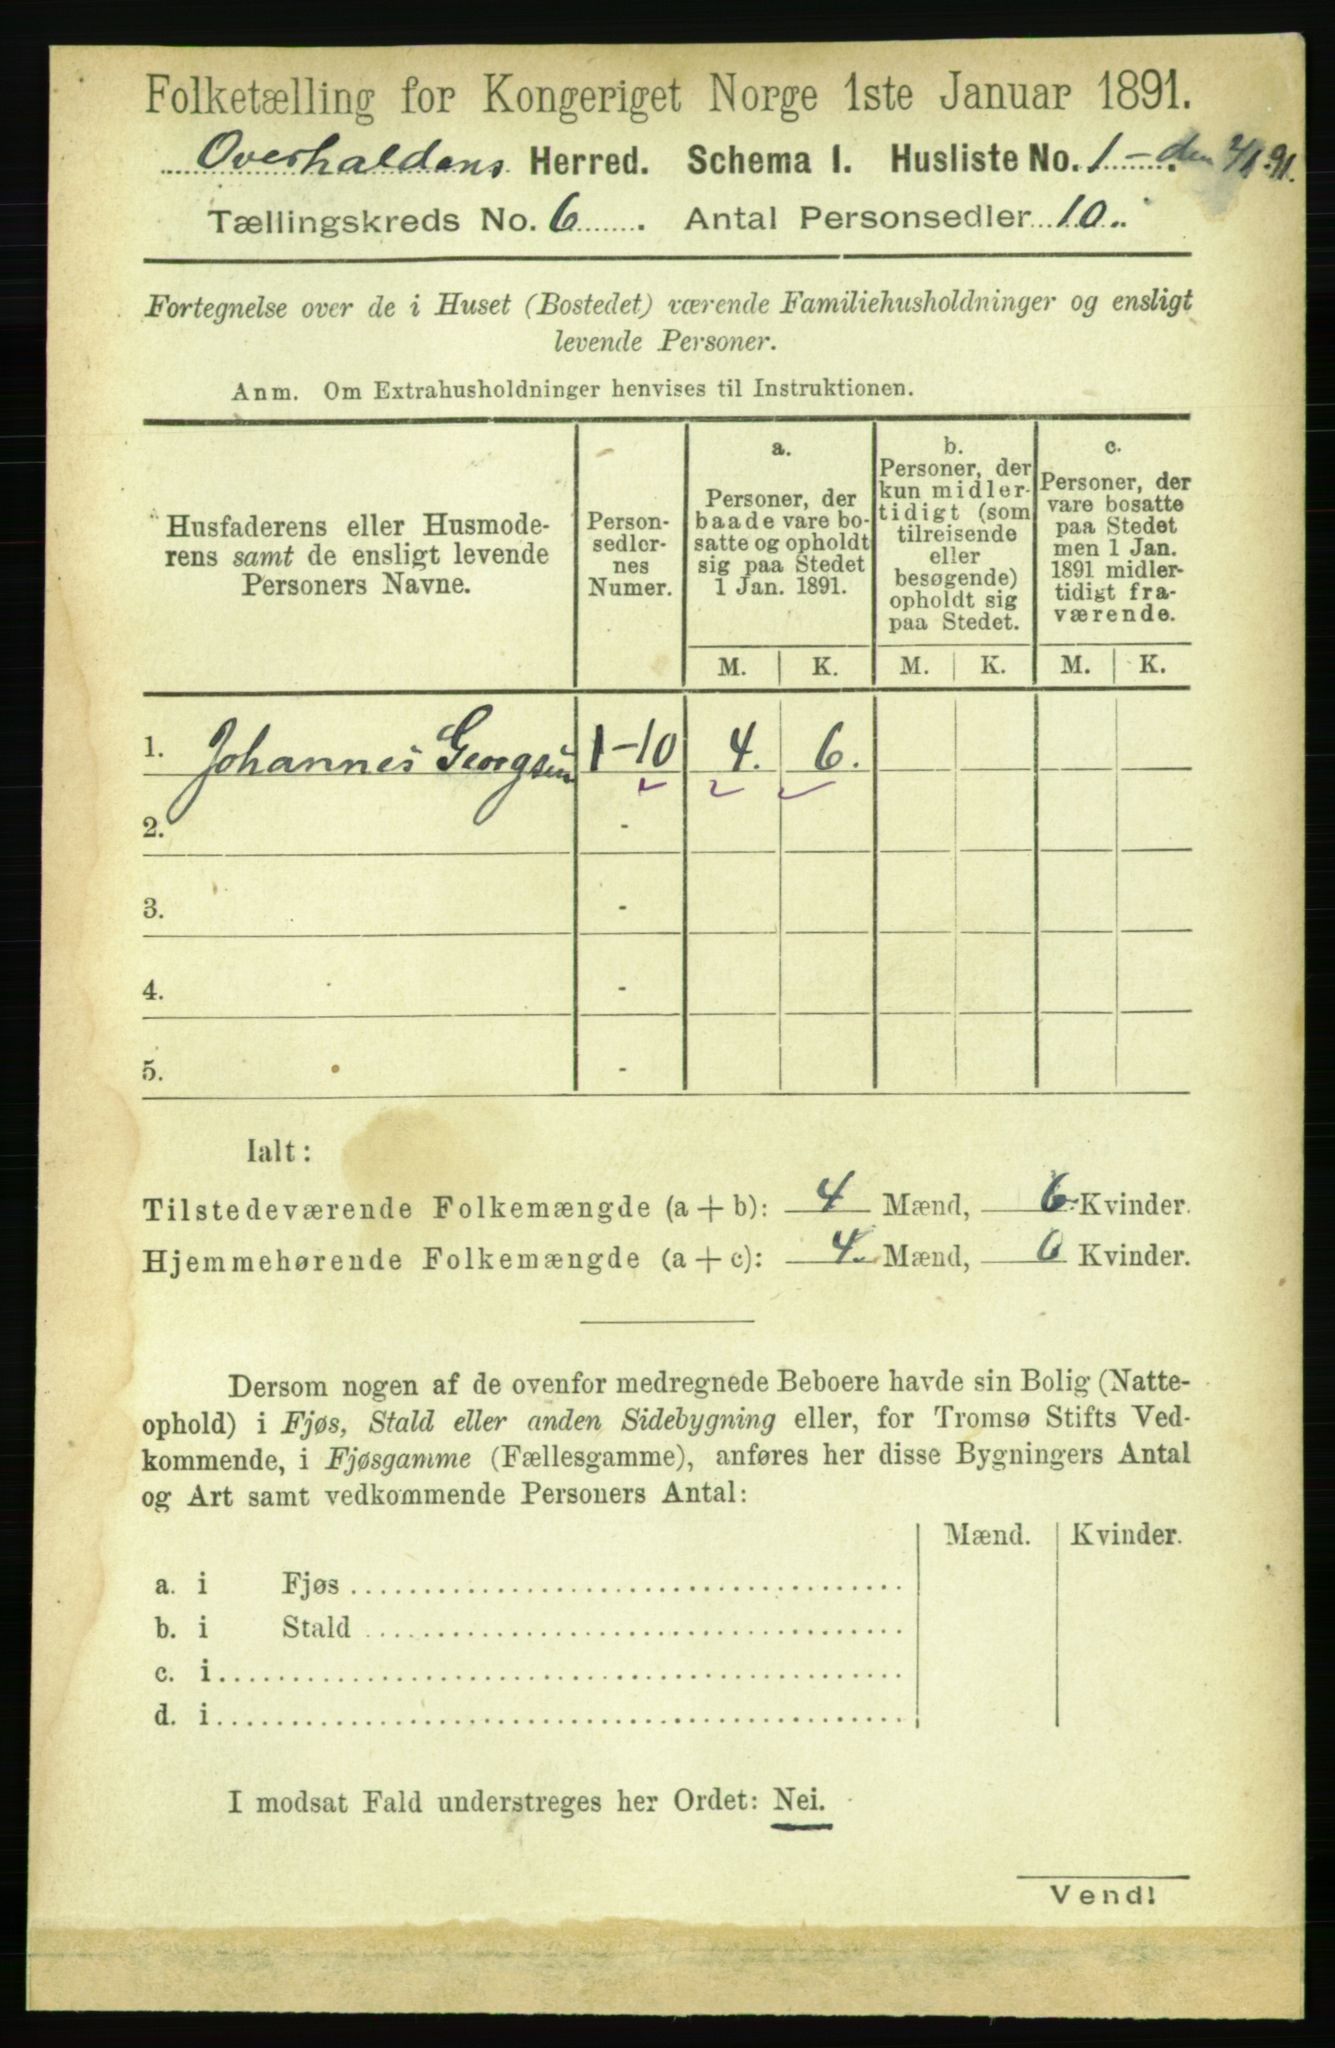 Folketælling for Kongeriget Norge 1ste Januar 1891.
Overhaldens Herred. Schema I. Husliste No. 1 - den
Tællingskreds No. 6. Antal Personsedler 10.
Fortegnelse over de i Huset (Bostedet) værende Familiehusholdninger og ensligt
levende Personer.
Anm. Om Extrahusholdninger henvises til Instruktionen.
Husfaderens eller Husmode-
rens samt de ensligt levende
Personers Navne.
Person-
sedler-
nes
Numer.
a.
Personer, der
baade vare bo-
satte og opholdt
sig paa Stedet
1 Jan. 1891.
b.
Personer, der
kun midler-
tidigt (som
tilreisende
eller
besøgende)
opholdt sig
paa Stedet.
c.
Personer, der
vare bosatte
paa Stedet
men 1 Jan.
1891 midler-
tidigt fra-
værende.
M. K. M. K. M. K.
1. Johannes Georgsen 1-10 4. 6.
2. -
3. -
4. -
5. -
Ialt:
Tilstedeværende Folkemængde (a + b): 4 Mænd, 6 Kvinder.
Hjemmehørende Folkemængde (a + c): 4. Mænd, 6 Kvinder.
Dersom nogen af de ovenfor medregnede Beboere havde sin Bolig (Natte-
ophold) i Fjøs, Stald eller anden Sidebygning eller, for Tromsø Stifts Ved-
kommende, i Fjøsgamme (Fællesgamme), anføres her disse Bygningers Antal
og Art samt vedkommende Personers Antal:
Mænd. Kvinder.
a. i Fjøs
b. i Stald
c. i
d. i
I modsat Fald understreges her Ordet: Nei.
Vend!